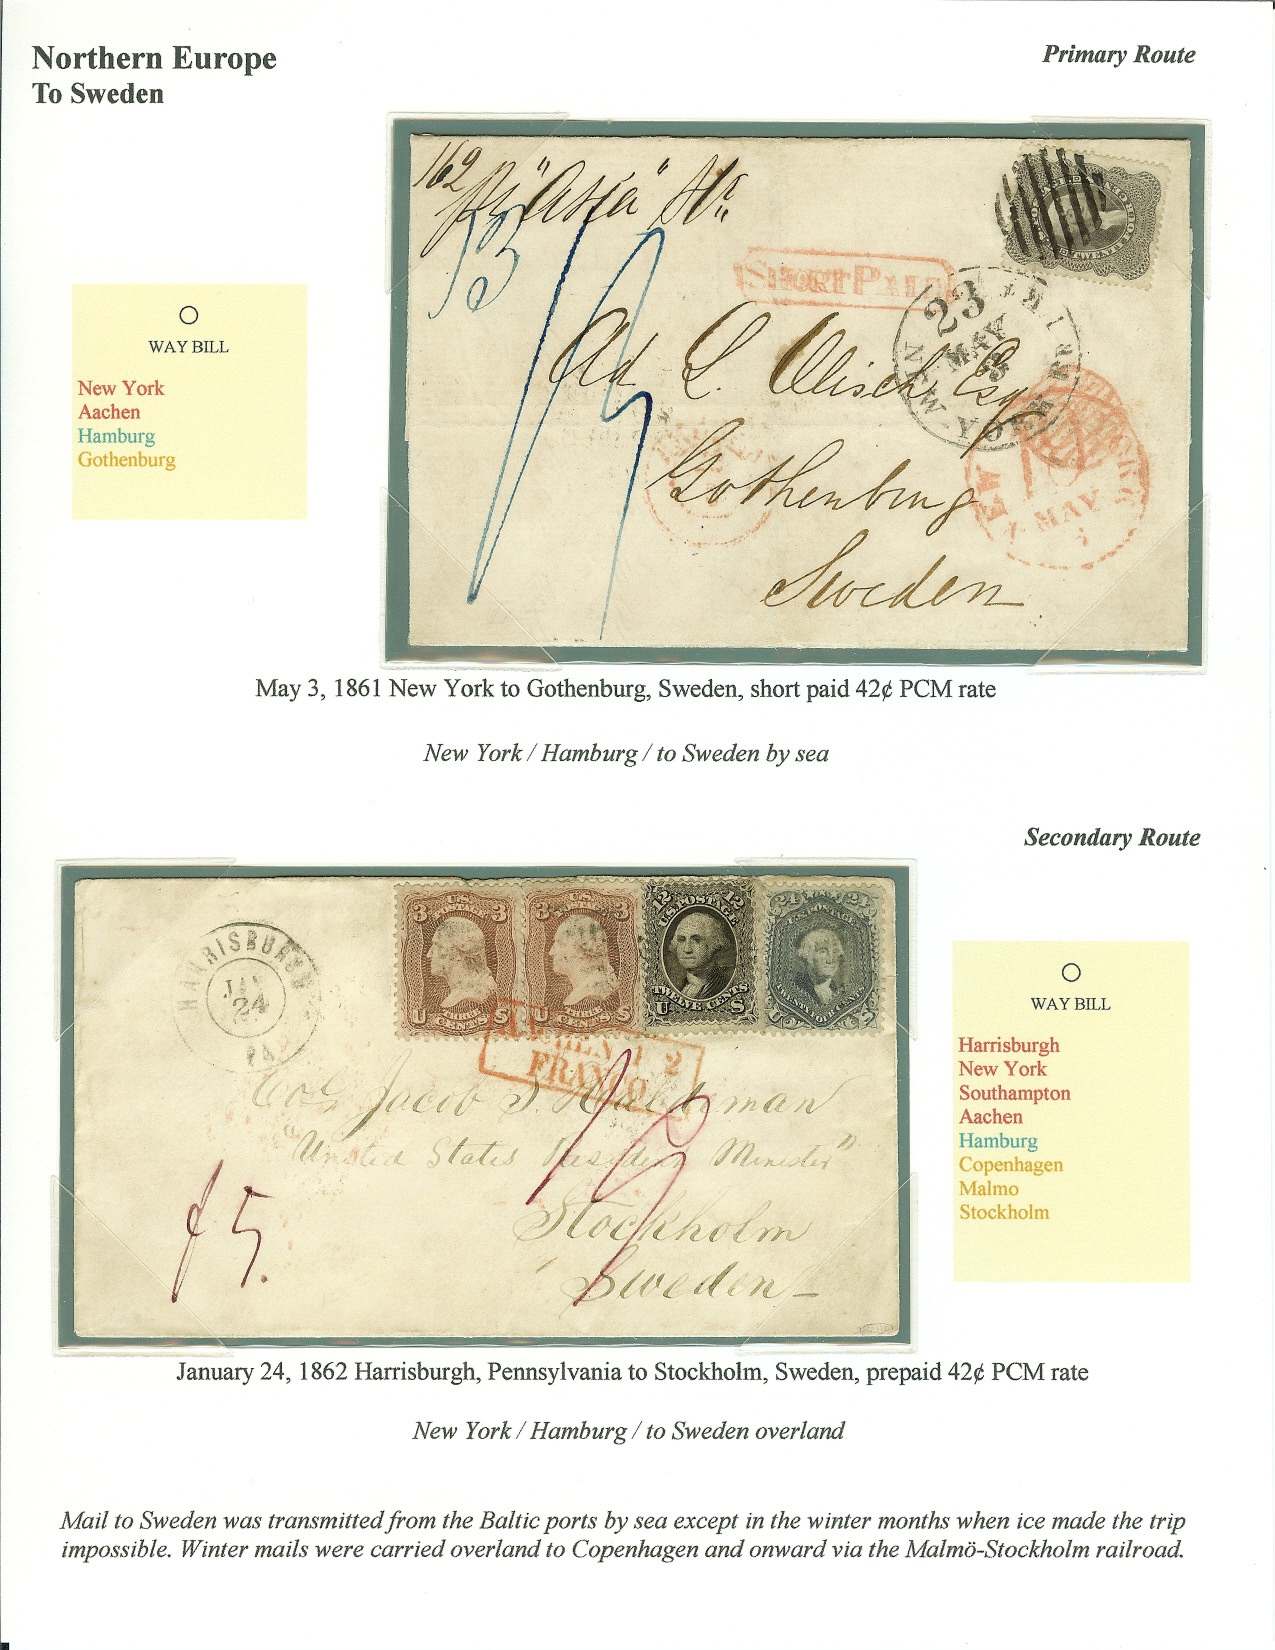 Northern Europe
To Sweden
Primary Route
162
pr "Asia" Str
SHORT PAID
23
MAY
3
NEW YORK
Esq
Gothenburg
Sweden
NEW YORK
MAY
WAY BILL
New York
Aachen
Hamburg
Gothenburg
May 3, 1861 New York to Gothenburg, Sweden, short paid 42¢ PCM rate
New York / Hamburg / to Sweden by sea
Secondary Route
HARRISBURGH
JAN
24
PA.
3 U.S. POSTAGE 3
U CENTS S
3 U.S. POSTAGE 3
U CENTS S
12 U.S. POSTAGE 12
TWELVE CENTS
U S
24 U.S. POSTAGE 24
AACHEN 1 2
FRANCO
Col. Jacob S. Haldeman
"United States Resident Minister"
Stockholm
Sweden
f 5.
WAY BILL
Harrisburgh
New York
Southampton
Aachen
Hamburg
Copenhagen
Malmo
Stockholm
January 24, 1862 Harrisburgh, Pennsylvania to Stockholm, Sweden, prepaid 42¢ PCM rate
New York / Hamburg / to Sweden overland
Mail to Sweden was transmitted from the Baltic ports by sea except in the winter months when ice made the trip
impossible. Winter mails were carried overland to Copenhagen and onward via the Malmö-Stockholm railroad.